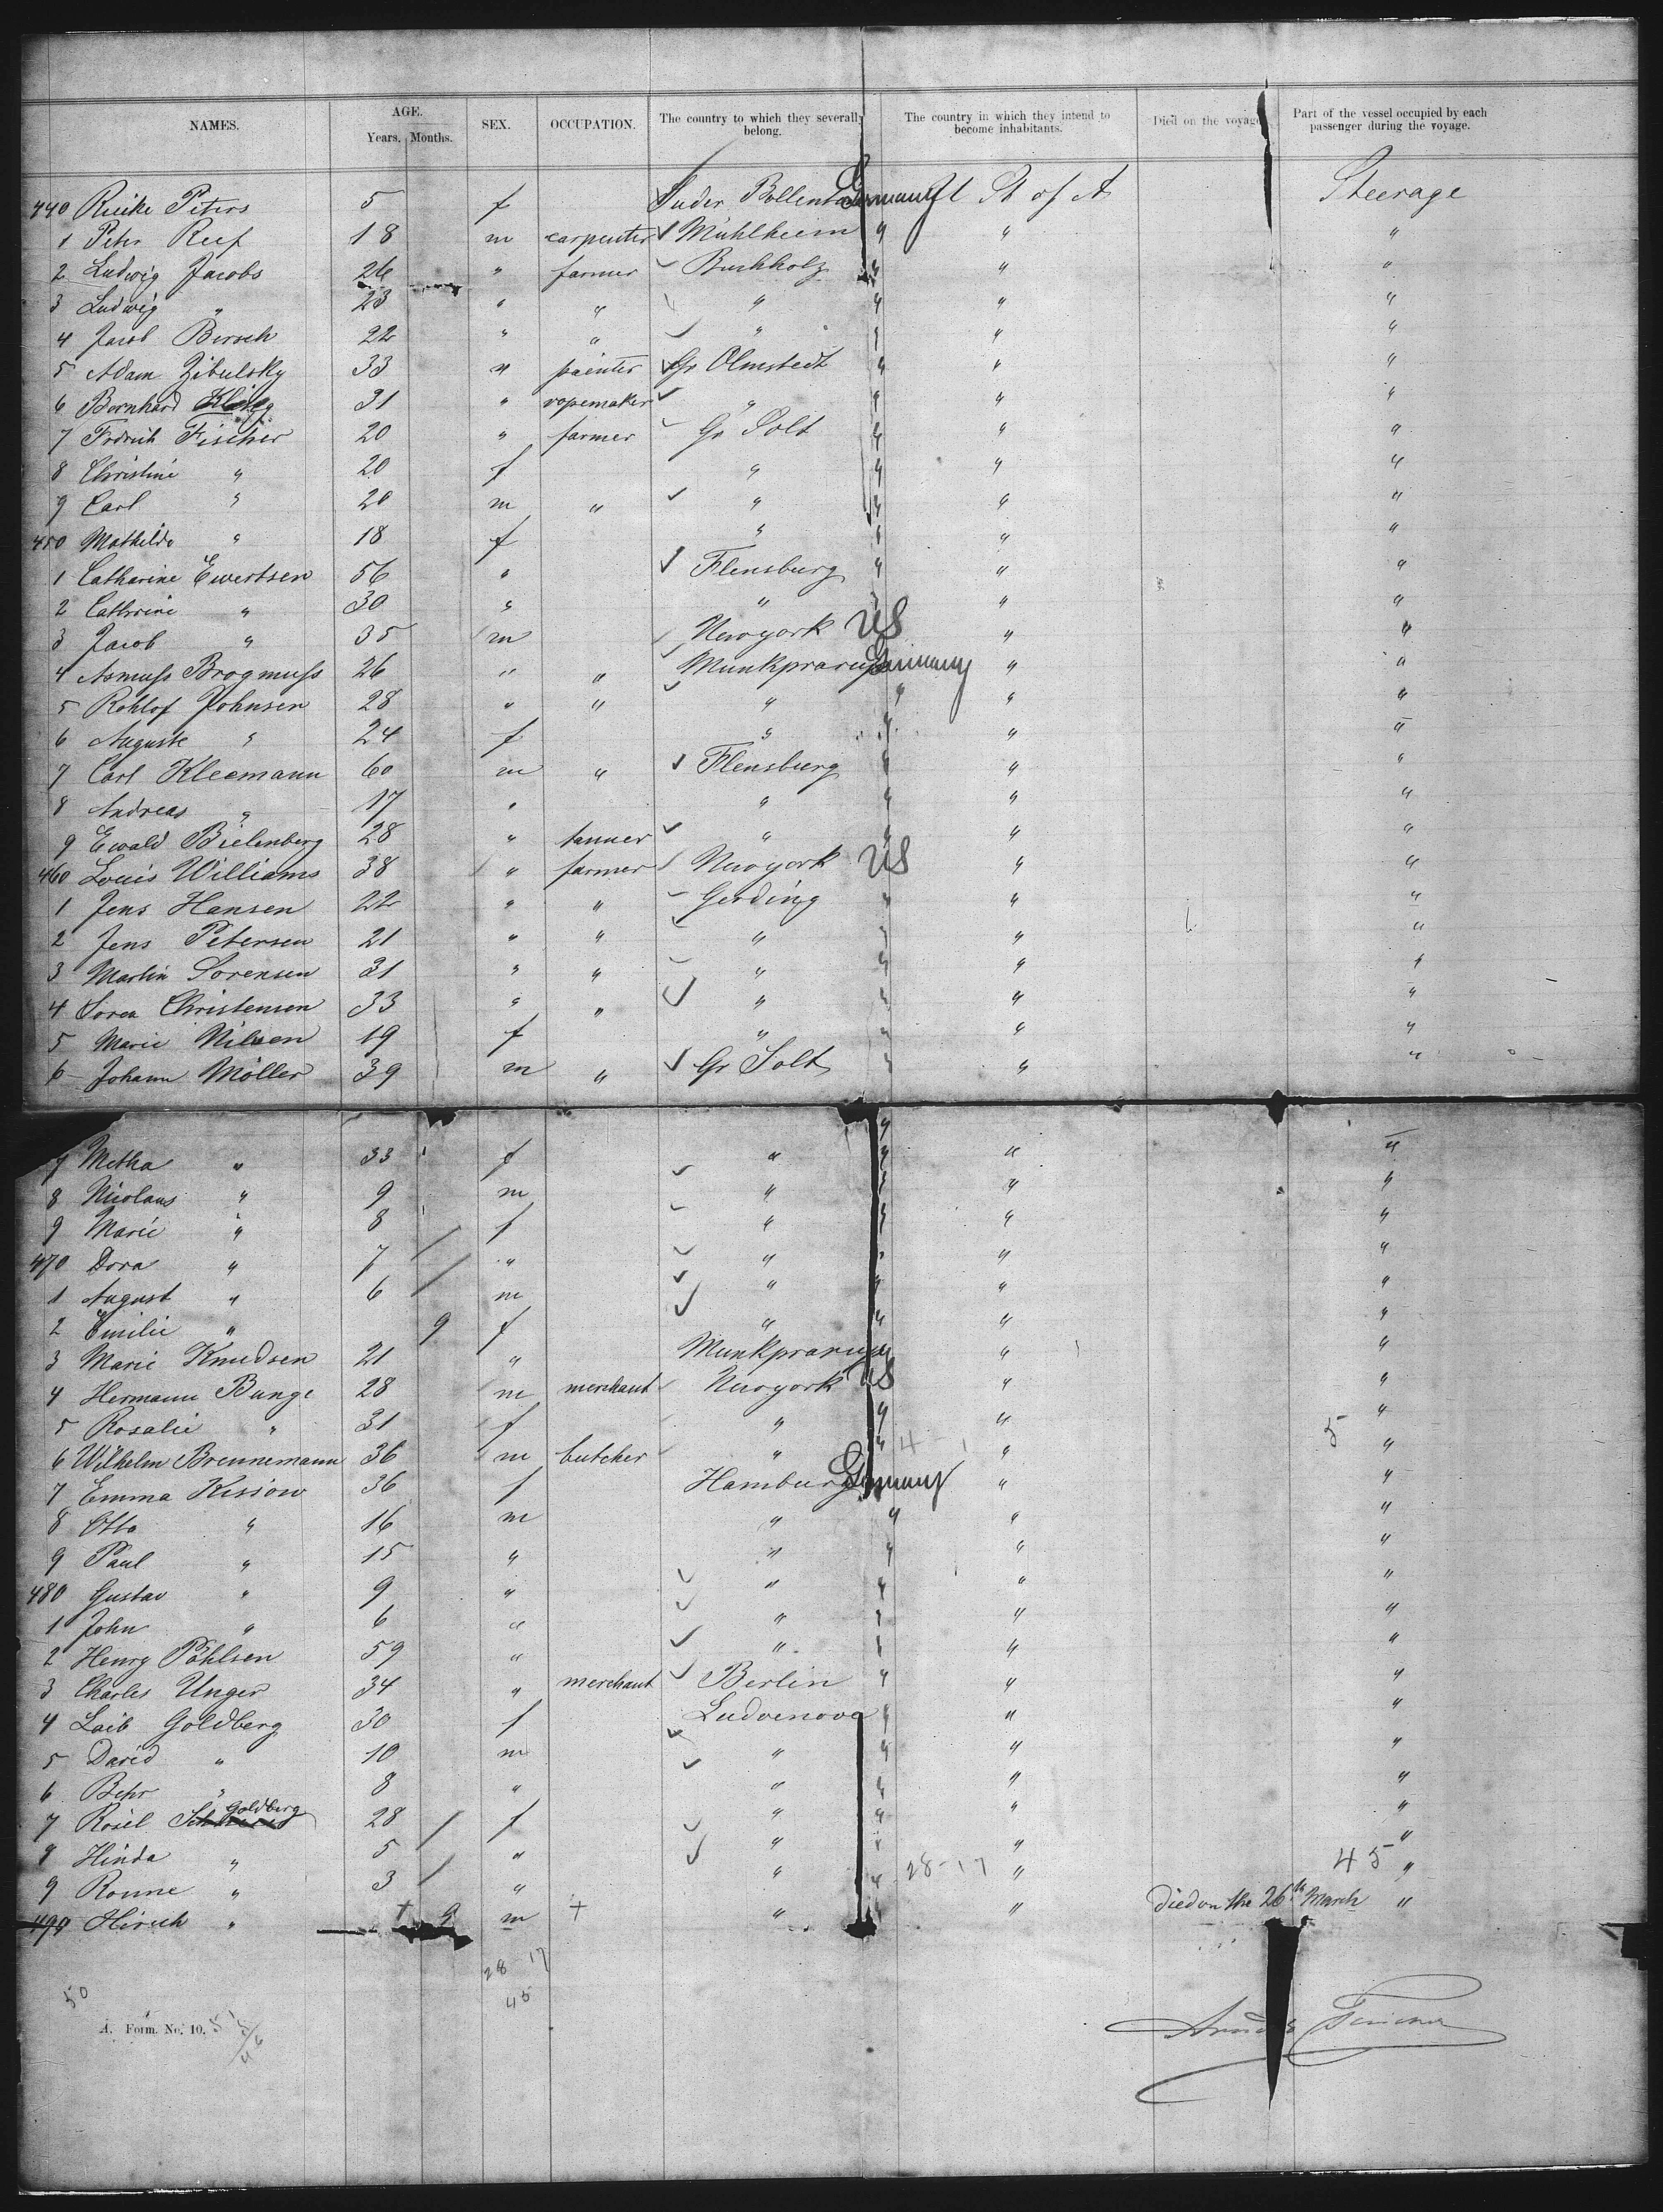 NAMES. AGE. Years. Months. SEX. OCCUPATION. The country to which they severally belong. The country in which they intend to become inhabitants. Died on the voyage Part of the vessel occupied by each passenger during the voyage.
440 Rieike Peters 5 f Suder Bollent Germany U St of A Steerage
1 Peter Reef 18 m carpenter Mühlheim " " "
2 Ludwig Jacobs 26 " farmer Buchholz " " "
3 Ludwig " 23 " " " " " "
4 Jacob Borsch 22 " " " " " "
5 Adam Zibulsky 33 " painter Gr Olmstedt " " "
6 Bernhard 31 " ropemaker " " " "
7 Frdrich Fischer 20 " farmer Gr Solt " " "
8 Christine " 20 f " " " "
9 Carl " 20 m " " " " "
450 Mathilde " 18 f " " " "
1 Catharine Ewertsen 56 " Flensburg " " "
2 Cathrine " 30 " " " " "
3 Jacob " 35 m Newyork US " "
4 Asmuss Brogmuss 26 " " Munkprarup Germany " "
5 Rohlof Johnsen 28 " " " " " "
6 Auguste " 24 f " " " "
7 Carl Kleemann 60 m " Flensburg " " "
8 Andreas " 17 " " " " "
9 Ewald Bielenberg 28 " tanner " " " "
460 Louis Williams 38 " farmer Newyork US " "
1 Jens Hansen 22 " " Gerding " " "
2 Jens Petersen 21 " " " " " "
3 Martin Sorensen 31 " " " " " "
4 Soren Christensen 33 " " " " " "
5 Marie Nilsen 19 f " " " "
6 Johann Möller 39 m " Gr Solt " " "
7 Metha " 33 f " " " "
8 Nicolaus " 9 m " " " "
9 Marie " 8 f " " " "
470 Dora " 7 " " " " "
1 August " 6 m " " " "
2 Emilie " 9 f " " " "
3 Marie Knudsen 21 " Munkprarup " " "
4 Hermann Bunge 28 m merchant Newyork US " "
5 Rosalie " 31 f " " " 5 "
6 Wilhelm Brennemann 36 m butcher " " 4 " "
7 Emma Kissow 36 f Hamburg Germany " "
8 Otto " 16 m " " " "
9 Paul " 15 " " " " "
480 Gustav " 9 " " " " "
1 John " 6 " " " " "
2 Henry Pöhlsen 59 " " " " "
3 Charles Unger 34 " merchant Berlin " " "
4 Laib Goldberg 30 f Ludvenova " " "
5 David " 10 m " " " "
6 Behr " 8 " " " " "
7 Rosel Goldberg 28 f " " " "
8 Hinda " 5 " " " " "
9 Ronne " 3 " " " 28-17 " 45 "
490 Hirsch " + 9 m + " " " Died on the 26th March "
28 17
45
50
A. Form. No. 10.